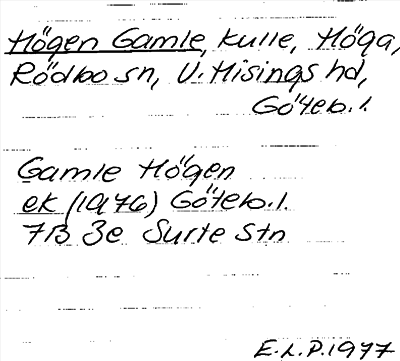 Högen Gamle, kulle, Höga,
Rödbo sn, V. Hisings hd,
Göteb. l.
Gamle Högen
ek (1976) Göteb. l.
7B 3e Surte Stn
E.L.P. 1977